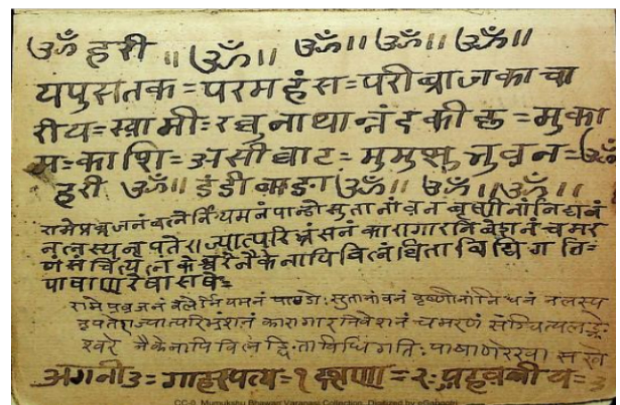 ॐ हरी ॥ ॐ ॥ ॐ ॥ ॐ ॥ ॐ ॥
यपुसतक = परमहंस = परीब्राजकाचा
रीय = स्वामीः रघुनाथान्नंद की छ = मुका
मः काशि = असीघाट = मुमुक्षु भुवन = ॐ
हरी ॐ ॥ डंडी बाडा ॐ ॥ ॐ ॥ ॐ ॥
रामेप्रब्रजनं बलेर्नियमनं पान्डोसुतानांवनं बृष्णीनांनिधनं
नलस्य नृपते राज्यात्परिभ्रंसनं कारागारनिवेशनं चमर
णंसंचित्य लंकेश्वरे नैकेनापि विलंघिता विधि गतिः
पाषाणरेखासखे
रामेप्रब्रजनं बलेर्नियमनं पाण्डोः सुतानांवनं वृष्णीनांनिधनं नलस्य
नृपतेराज्यात्परिभ्रंशनं कारागारनिवेशनं चमरणं संचित्यलङ्के
श्वरे नैकेनापि विलङ्घिता विधिगतिः पाषाणरेखा सखे
अगनी ३ = गाहापत्य = १ = २ः = ३
CC-0. Mumukshu Bhawan Varanasi Collection. Digitized by eGangotri